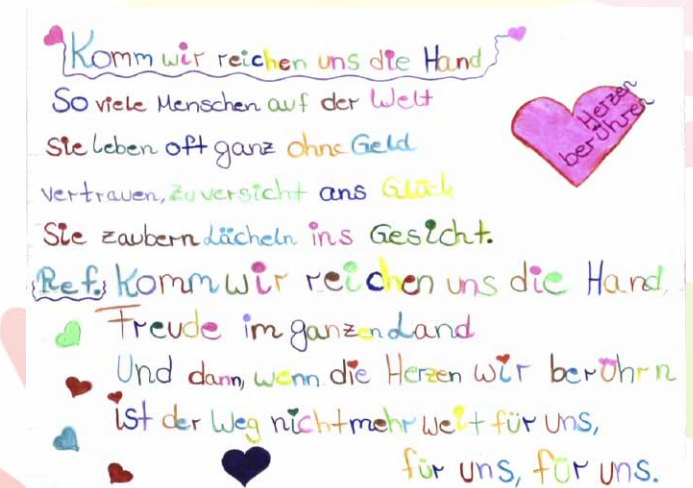 Komm wir reichen uns die Hand
So viele Menschen auf der Welt
Herzen
berühren
Sie leben oft ganz ohne Geld
vertrauen, zuversicht ans Glück
Sie zaubern Lächeln ins Gesicht.
Ref. Komm wir reichen uns die Hand,
Freude im ganzen Land
Und dann, wenn die Herzen wir berührn
ist der Weg nicht mehr weit für uns,
für uns, für uns.